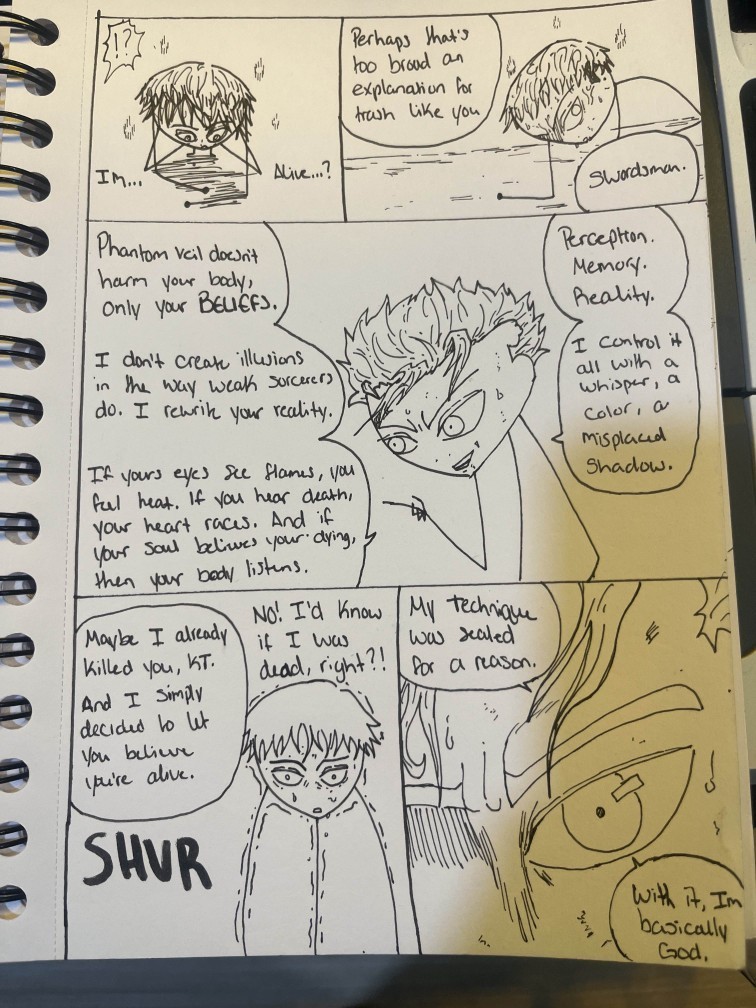 !?
Im...
Alive...?
Perhaps that's
too broad an
explanation for
trash like you
Swordsman.
Phantom veil doesn't
harm your body,
only your BELIEFS.
I don't create illusions
in the way weak sorcerers
do. I rewrite your reality.
If yours eyes see flames, you
feel heat. If you hear death,
your heart races. And if
your soul believes your dying,
then your body listens.
Perception.
Memory.
Reality.
I control it
all with a
whisper, a
color, a
misplaced
shadow.
Maybe I already
killed you, KT.
And I simply
decided to let
you believe
you're alive.
NO! I'd know
if I was
dead, right?!
SHVR
My technique
was sealed
for a reason.
With it, Im
basically
God.